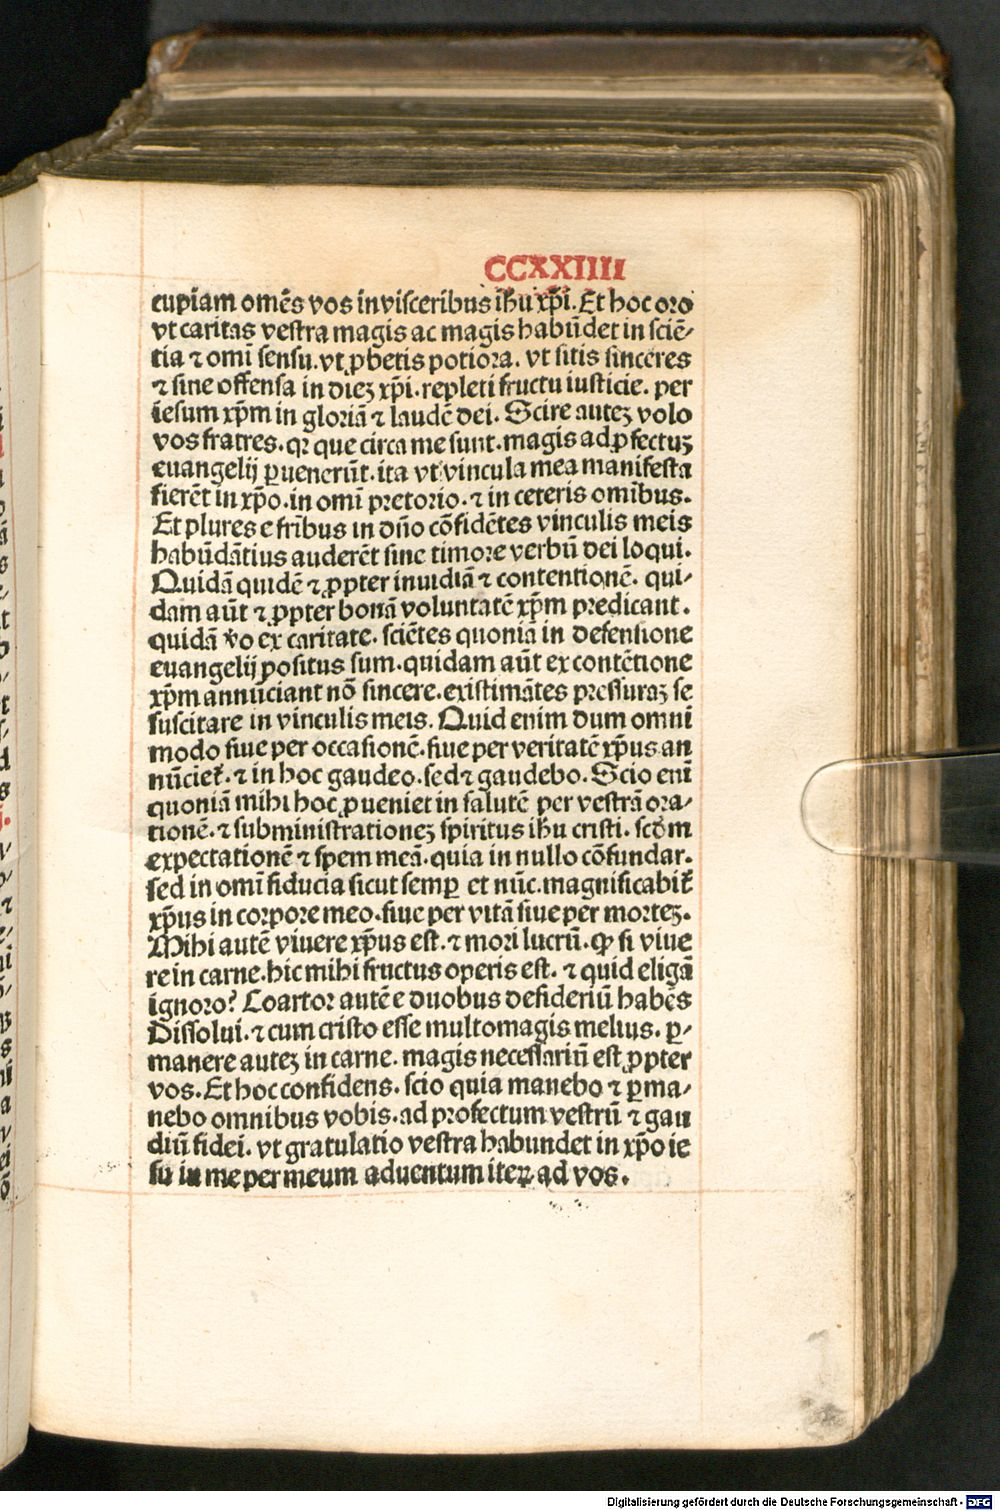 CCXXIIII
cupiam omēs vos in visceribus ihu xp̄i. Et hoc oro
vt caritas vestra magis ac magis habūdet in sciē-
tia ⁊ omi sensu. vt ꝓbetis potiora. vt sitis sinceres
⁊ sine offensa in dieꝫ xp̄i. repleti fructu iusticie. per
iesum xp̄m in gloriā ⁊ laudē dei. Scire auteꝫ volo
vos fratres. qꝛ que circa me sunt. magis ad ꝓfectuꝫ
euangelij ꝑuenerūt. ita vt vincula mea manifesta
fierēt in xp̄o. in omī pretorio. ⁊ in ceteris omībus.
Et plures e frībus in dn̄o cōfidētes vinculis meis
habūdātius auderēt sine timore verbū dei loqui.
Quidā quidē ⁊ ꝓpter inuidiā ⁊ contentionē. qui-
dam aūt ⁊ ꝓpter bonā voluntatē xp̄m predicant.
quidā v̄o ex caritate. sciētes quoniā in defensione
euangelij positus sum. quidam aūt ex contētione
xp̄m annūciant nō sincere. existimātes pressuraꝫ se
suscitare in vinculis meis. Quid enim dum omni
modo siue per occasionē. siue per veritatē xp̄us an
nūciet̄. ⁊ in hoc gaudeo. sed ⁊ gaudebo. Scio enī
quoniā mihi hoc ꝓueniet in salutē per vestrā ora-
tionē. ⁊ subministrationeꝫ spiritus ihu cristi. scd̄m
expectationē ⁊ spem meā. quia in nullo cōfundar.
sed in omī fiducia sicut semꝑ et nūc. magnificabit̄
xp̄us in corpore meo. siue per vitā siue per morteꝫ.
Mihi autē viuere xp̄us est. ⁊ mori lucrū. ꝙ si viue
re in carne. hic mihi fructus operis est. ⁊ quid eligā
ignoro? Coartor autē e duobus desideriū habēs
Dissolui. ⁊ cum cristo esse multomagis melius. ꝑ-
manere auteꝫ in carne. magis necessariū est ꝓpter
vos. Et hoc confidens. scio quia manebo ⁊ ꝑma-
nebo omnibus vobis. ad profectum vestrū ⁊ gau
diū fidei. vt gratulatio vestra habundet in xp̄o ie
su in me per meum aduentum iteꝝ ad vos.
Digitalisierung gefördert durch die Deutsche Forschungsgemeinschaft - DFG